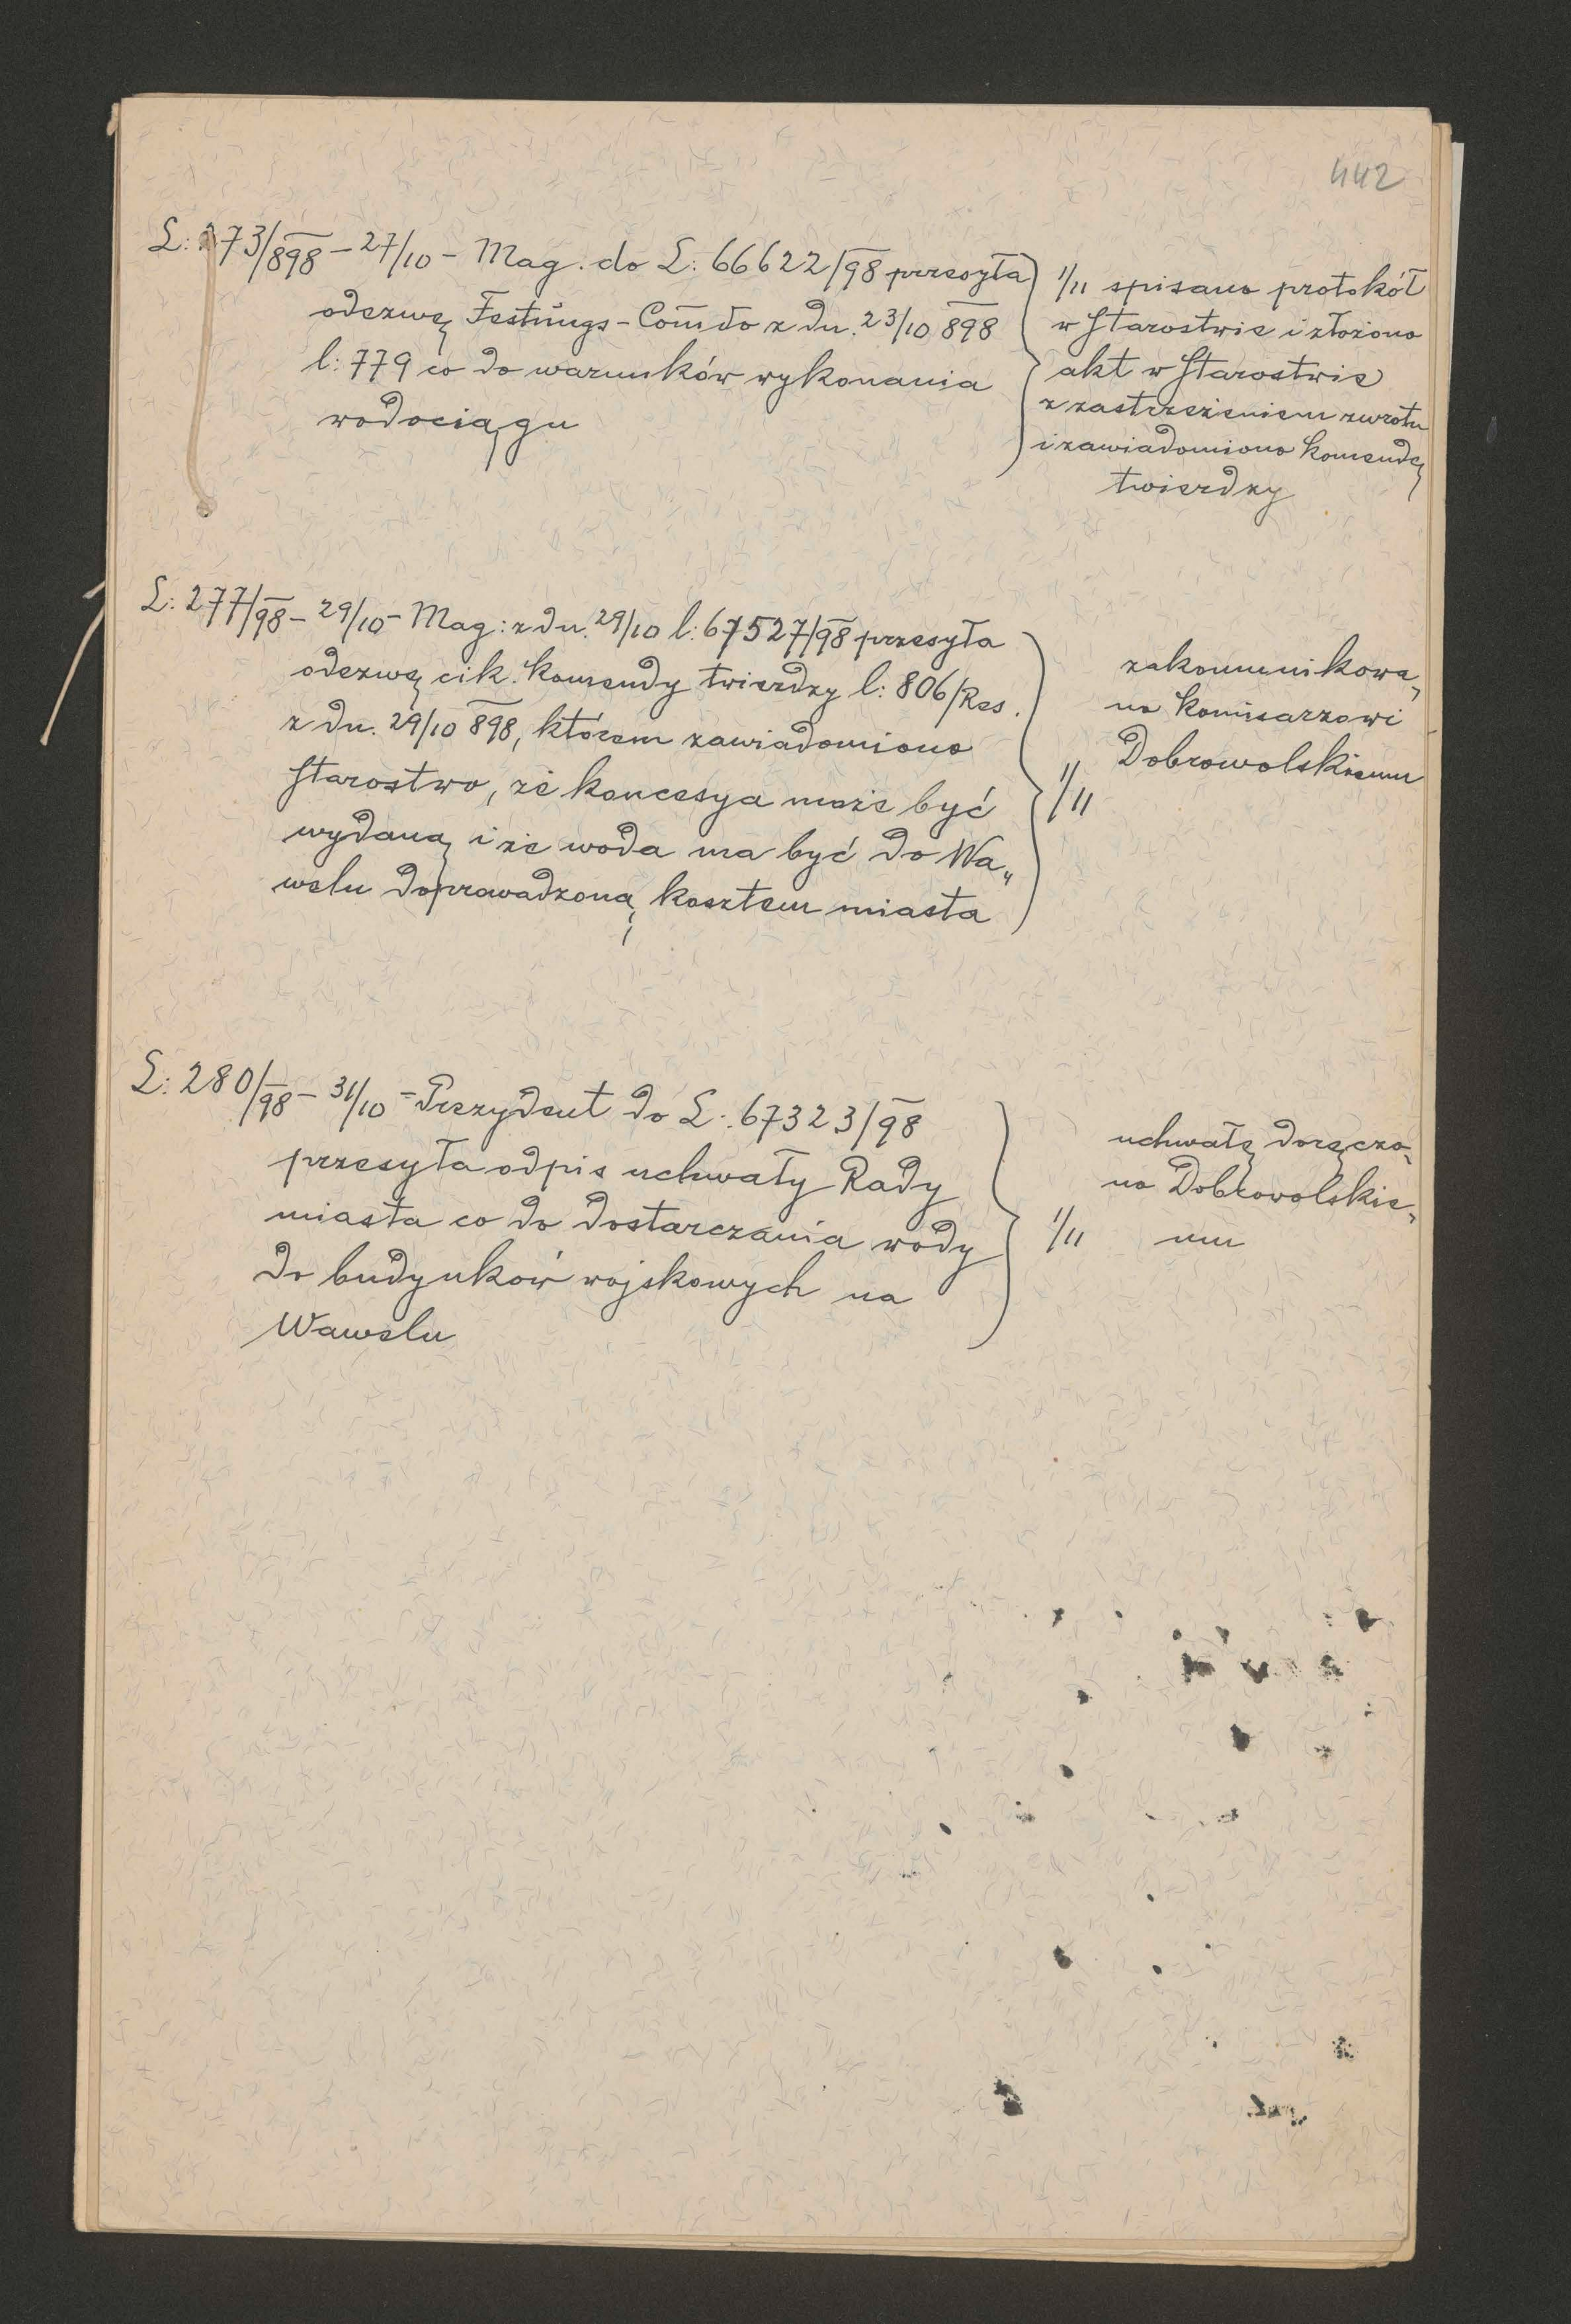 442
L: 273/898 – 27/10 – Mag. do L: 66622/98 przesyła
odezwę Festungs-Com̄do z dn. 23/10 898
l: 779 co do warunków wykonania
wodociągu
1/11 spisano protokół
w Starostwie i złożono
akt w Starostwie
z zastrzeżeniem zwrotu
i zawiadomiono komendę
twierdzy
L: 277/98 – 29/10 – Mag: z dn. 29/10 l: 67527/98 przesyła
odezwę cik. komendy twierdzy l: 806/Res.
z dn. 29/10 898, którem zawiadomiono
Starostwo, że koncesya może być
wydaną i że woda ma być do Wa„
welu doprowadzoną kosztem miasta
zakommunikowa„
no komisarzowi
Dobrowolskiemu
1/11
L: 280/98 – 31/10 – Prezydent do L. 67323/98
przesyła odpis uchwały Rady
miasta co do dostarczania wody
do budynków wojskowych na
Wawelu
uchwałę doręczo„
no Dobrowolskie„
1/11 mu